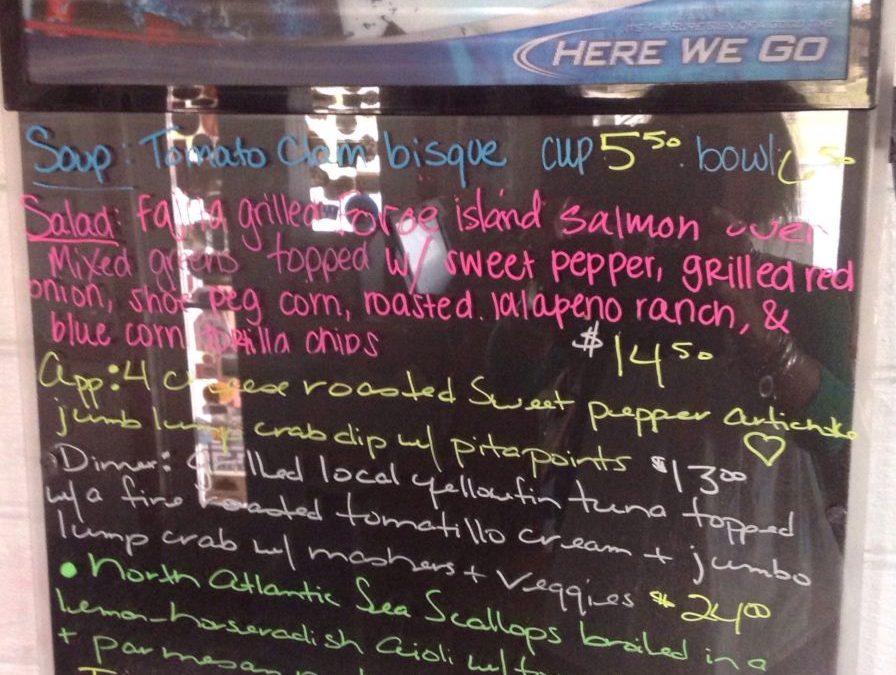 HERE WE GO
Soup: Tomato Clam bisque cup 5 50 bowl: 6 50
Salad: Fajita grilled Faroe island Salmon over
Mixed greens topped w/ sweet pepper, grilled red
onion, shoe peg corn, roasted jalapeno ranch, &
blue corn tortilla chips
$14 50
App: 4 cheese roasted Sweet pepper artichoke
jumb lump crab dip w/ pita points $13 00
Dinner: grilled local yellowfin tuna topped
w/ a fire roasted tomatillo cream + jumbo
lump crab w/ mashers + veggies $24 00
• North Atlantic Sea Scallops broiled in a
lemon-horseradish aioli w/
+ parmesan